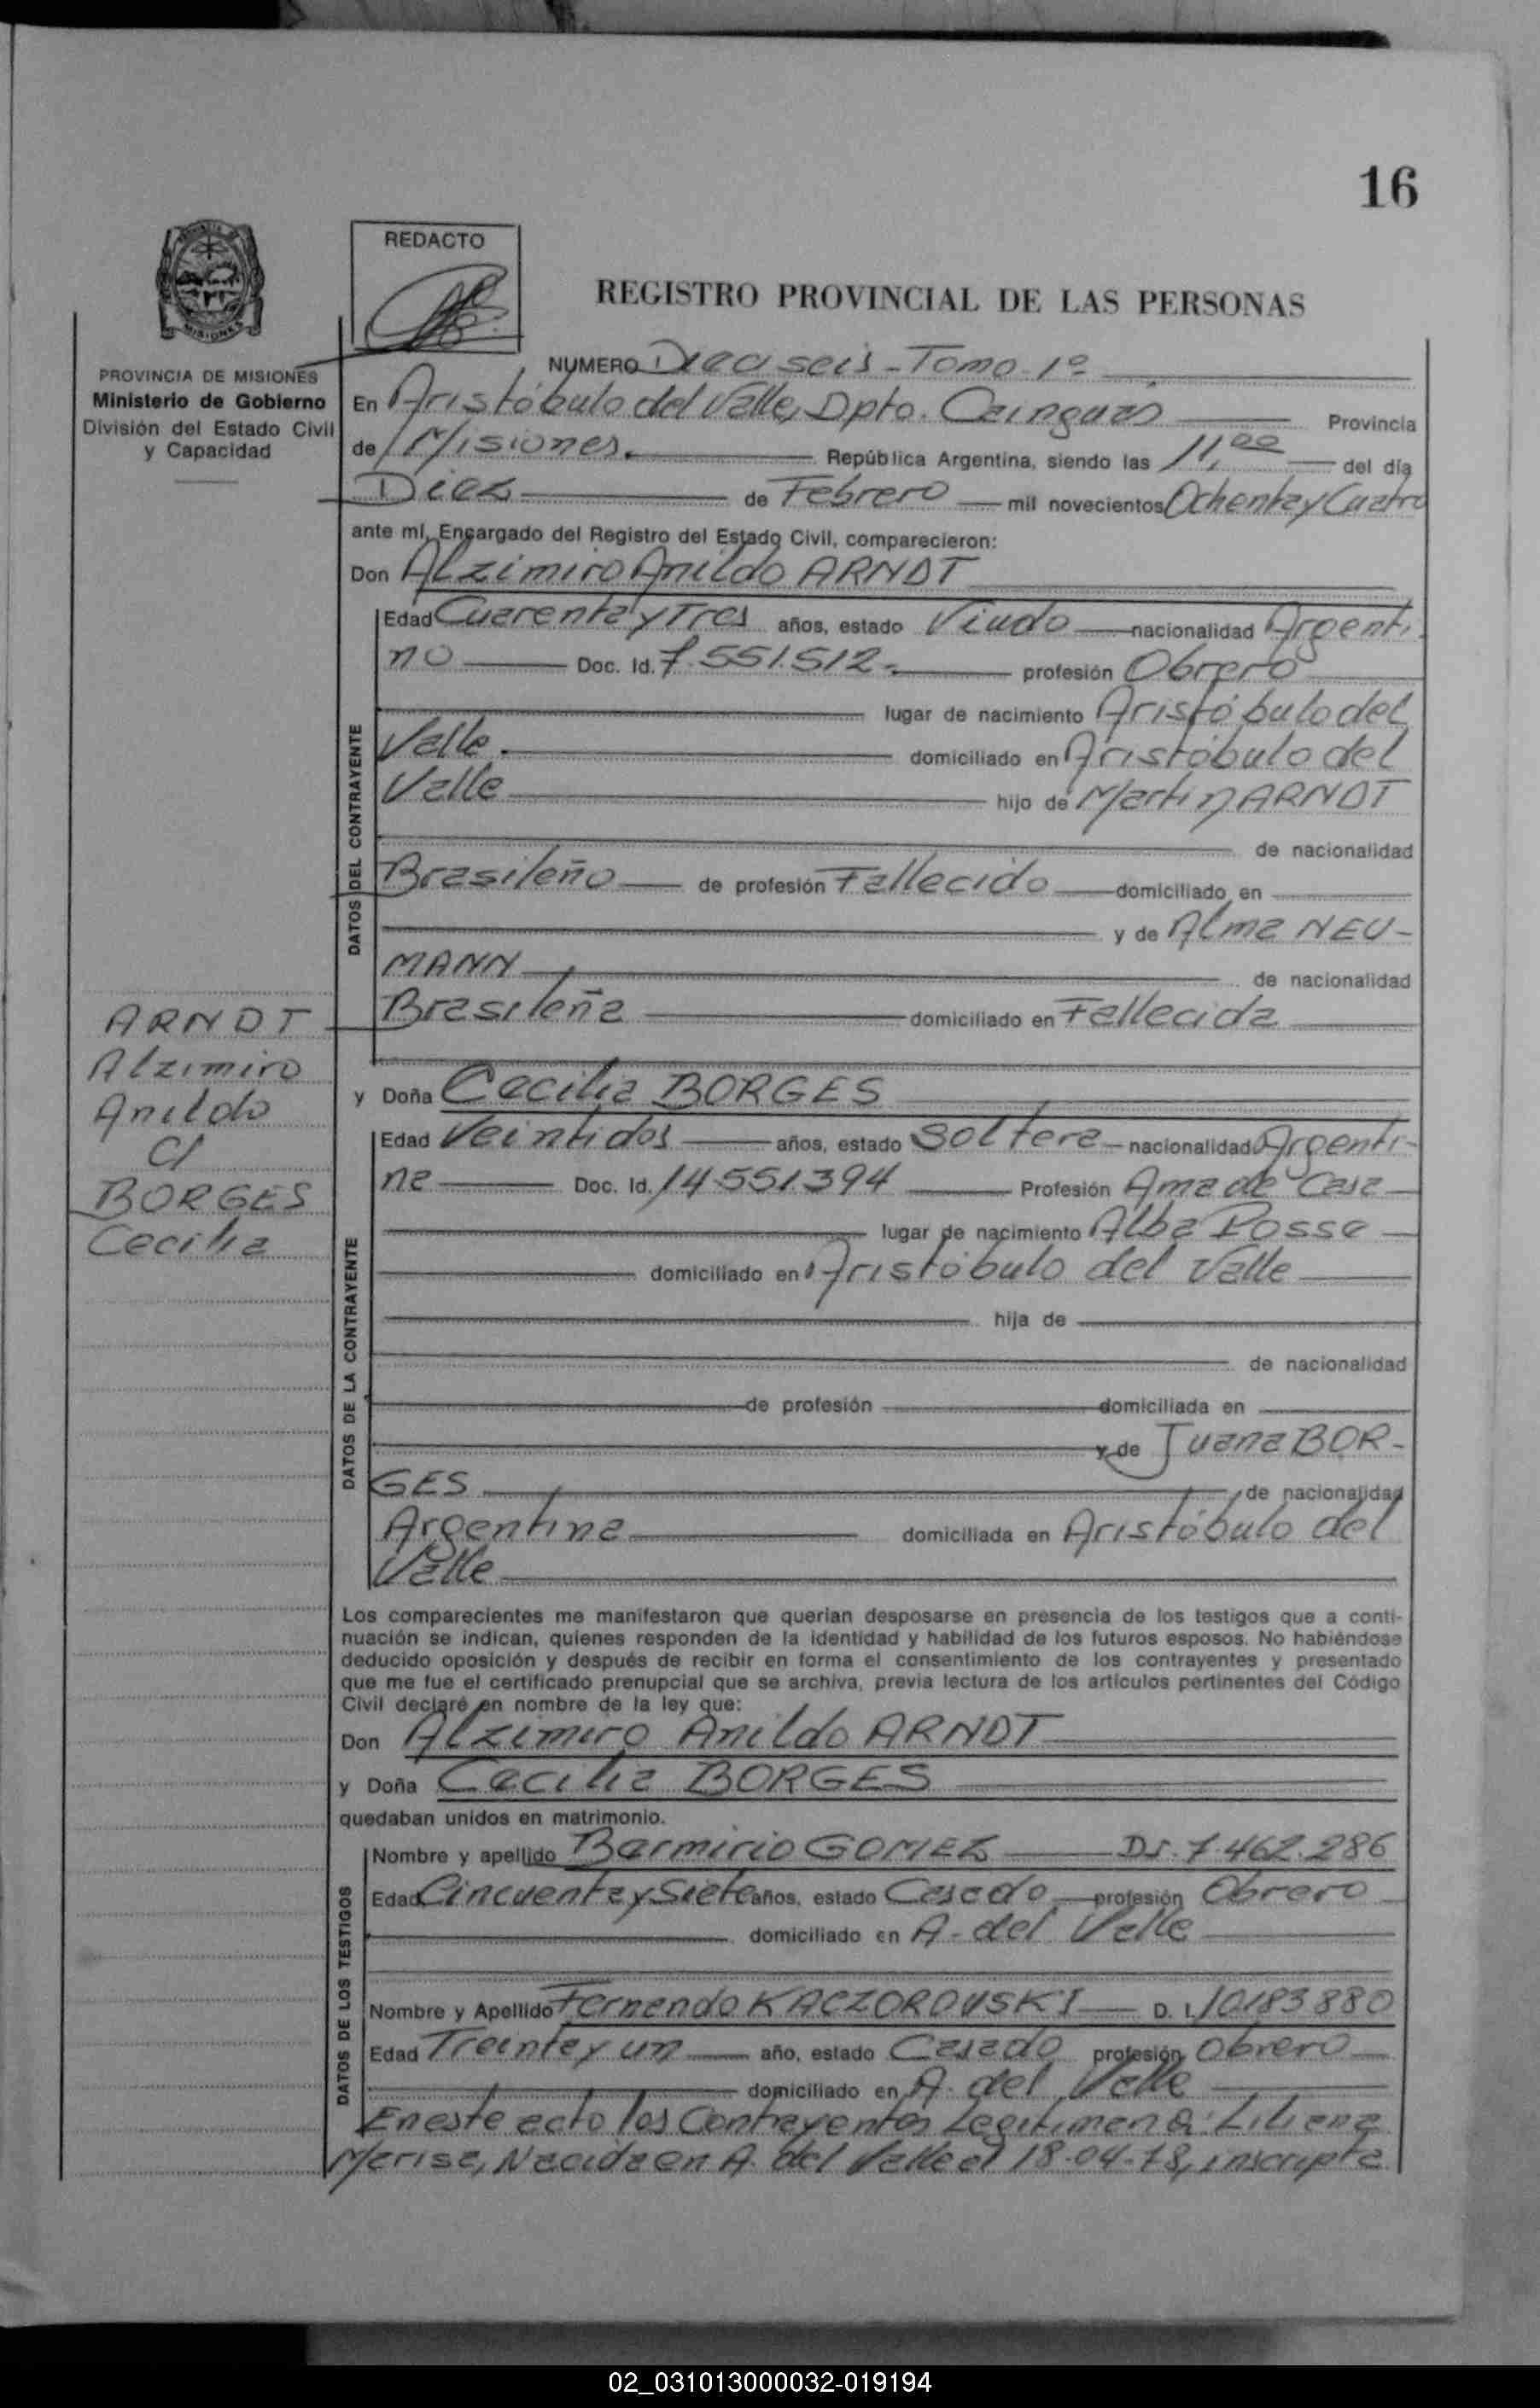 16
REDACTO
MISIONES
REGISTRO PROVINCIAL DE LAS PERSONAS
PROVINCIA DE MISIONES
Ministerio de Gobierno
División del Estado Civil
y Capacidad
NUMERO Dieciseis - Tomo 1º
En Aristóbulo del Valle, Dpto. Cainguás Provincia
de Misiones. República Argentina, siendo las 11,00 del día
Diez de Febrero mil novecientos Ochenta y Cuatro
ante mí, Encargado del Registro del Estado Civil, comparecieron:
Don Alzimiro Anildo ARNDT
DATOS DEL CONTRAYENTE
Edad Cuarenta y Tres años, estado Viudo nacionalidad Argenti-
no Doc. Id. 7.551.512- profesión Obrero
lugar de nacimiento Aristóbulo del
Valle. domiciliado en Aristóbulo del
Valle hijo de Martin ARNDT
de nacionalidad
Brasileño de profesión Fallecido domiciliado en
y de Alma NEU-
MANN de nacionalidad
Brasileña domiciliado en Fallecida
ARNDT
Alzimiro
Anildo
C/
BORGES
Cecilia
y Doña Cecilia BORGES
DATOS DE LA CONTRAYENTE
Edad Veintidos años, estado Soltera nacionalidad Argenti-
na Doc. Id. 14.551.394 Profesión Ama de Casa
lugar de nacimiento Alba Posse
domiciliado en Aristóbulo del Valle
hija de
de nacionalidad
de profesión domiciliada en
y de Juana BOR-
GES de nacionalidad
Argentina domiciliada en Aristóbulo del
Valle
Los comparecientes me manifestaron que querían desposarse en presencia de los testigos que a conti-
nuación se indican, quienes responden de la identidad y habilidad de los futuros esposos. No habiéndose
deducido oposición y después de recibir en forma el consentimiento de los contrayentes y presentado
que me fue el certificado prenupcial que se archiva, previa lectura de los artículos pertinentes del Código
Civil declaré en nombre de la ley que:
Don Alzimiro Anildo ARNDT
y Doña Cecilia BORGES
quedaban unidos en matrimonio.
DATOS DE LOS TESTIGOS
Nombre y apellido Barmirio GOMEZ DI. 7.462.286
Edad Cincuenta y Siete años, estado Casado profesión Obrero
domiciliado en A. del Valle
Nombre y Apellido Fernando KACZOROVSKI D. I. 10183880
Edad Treinta y un año, estado Casado profesión Obrero
domiciliado en A. del Valle
En este acto los Contrayentes Legitiman a: Liliana
Marisa, Nacida en A. del Valle el 18-04-78, inscripta
02_031013000032-019194